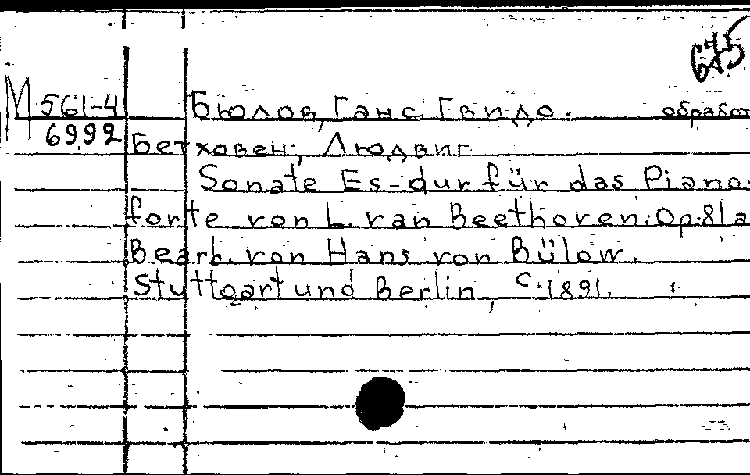 645
М 561-4 Бюлов, Ганс Гвидо. обработ
6992 Бетховен, Людвиг
Sonate Es-dur für das Piano-
forte von L. van Beethoven. Op. 81a
Bearb. von Hans von Bülow.
Stuttgart und Berlin, c. 1891.